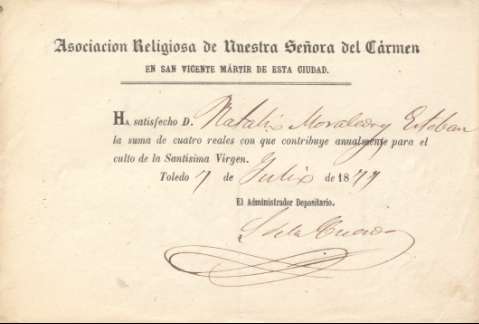 Asociacion Religiosa de Nuestra Señora del Cármen
EN SAN VICENTE MÁRTIR DE ESTA CIUDAD.
HA satisfecho D. Natalio Moraleda y Esteban
la suma de cuatro reales con que contribuye anualmente para el
culto de la Santísima Virgen.
Toledo 7 de Julio de 1877
El Administrador Depositario.